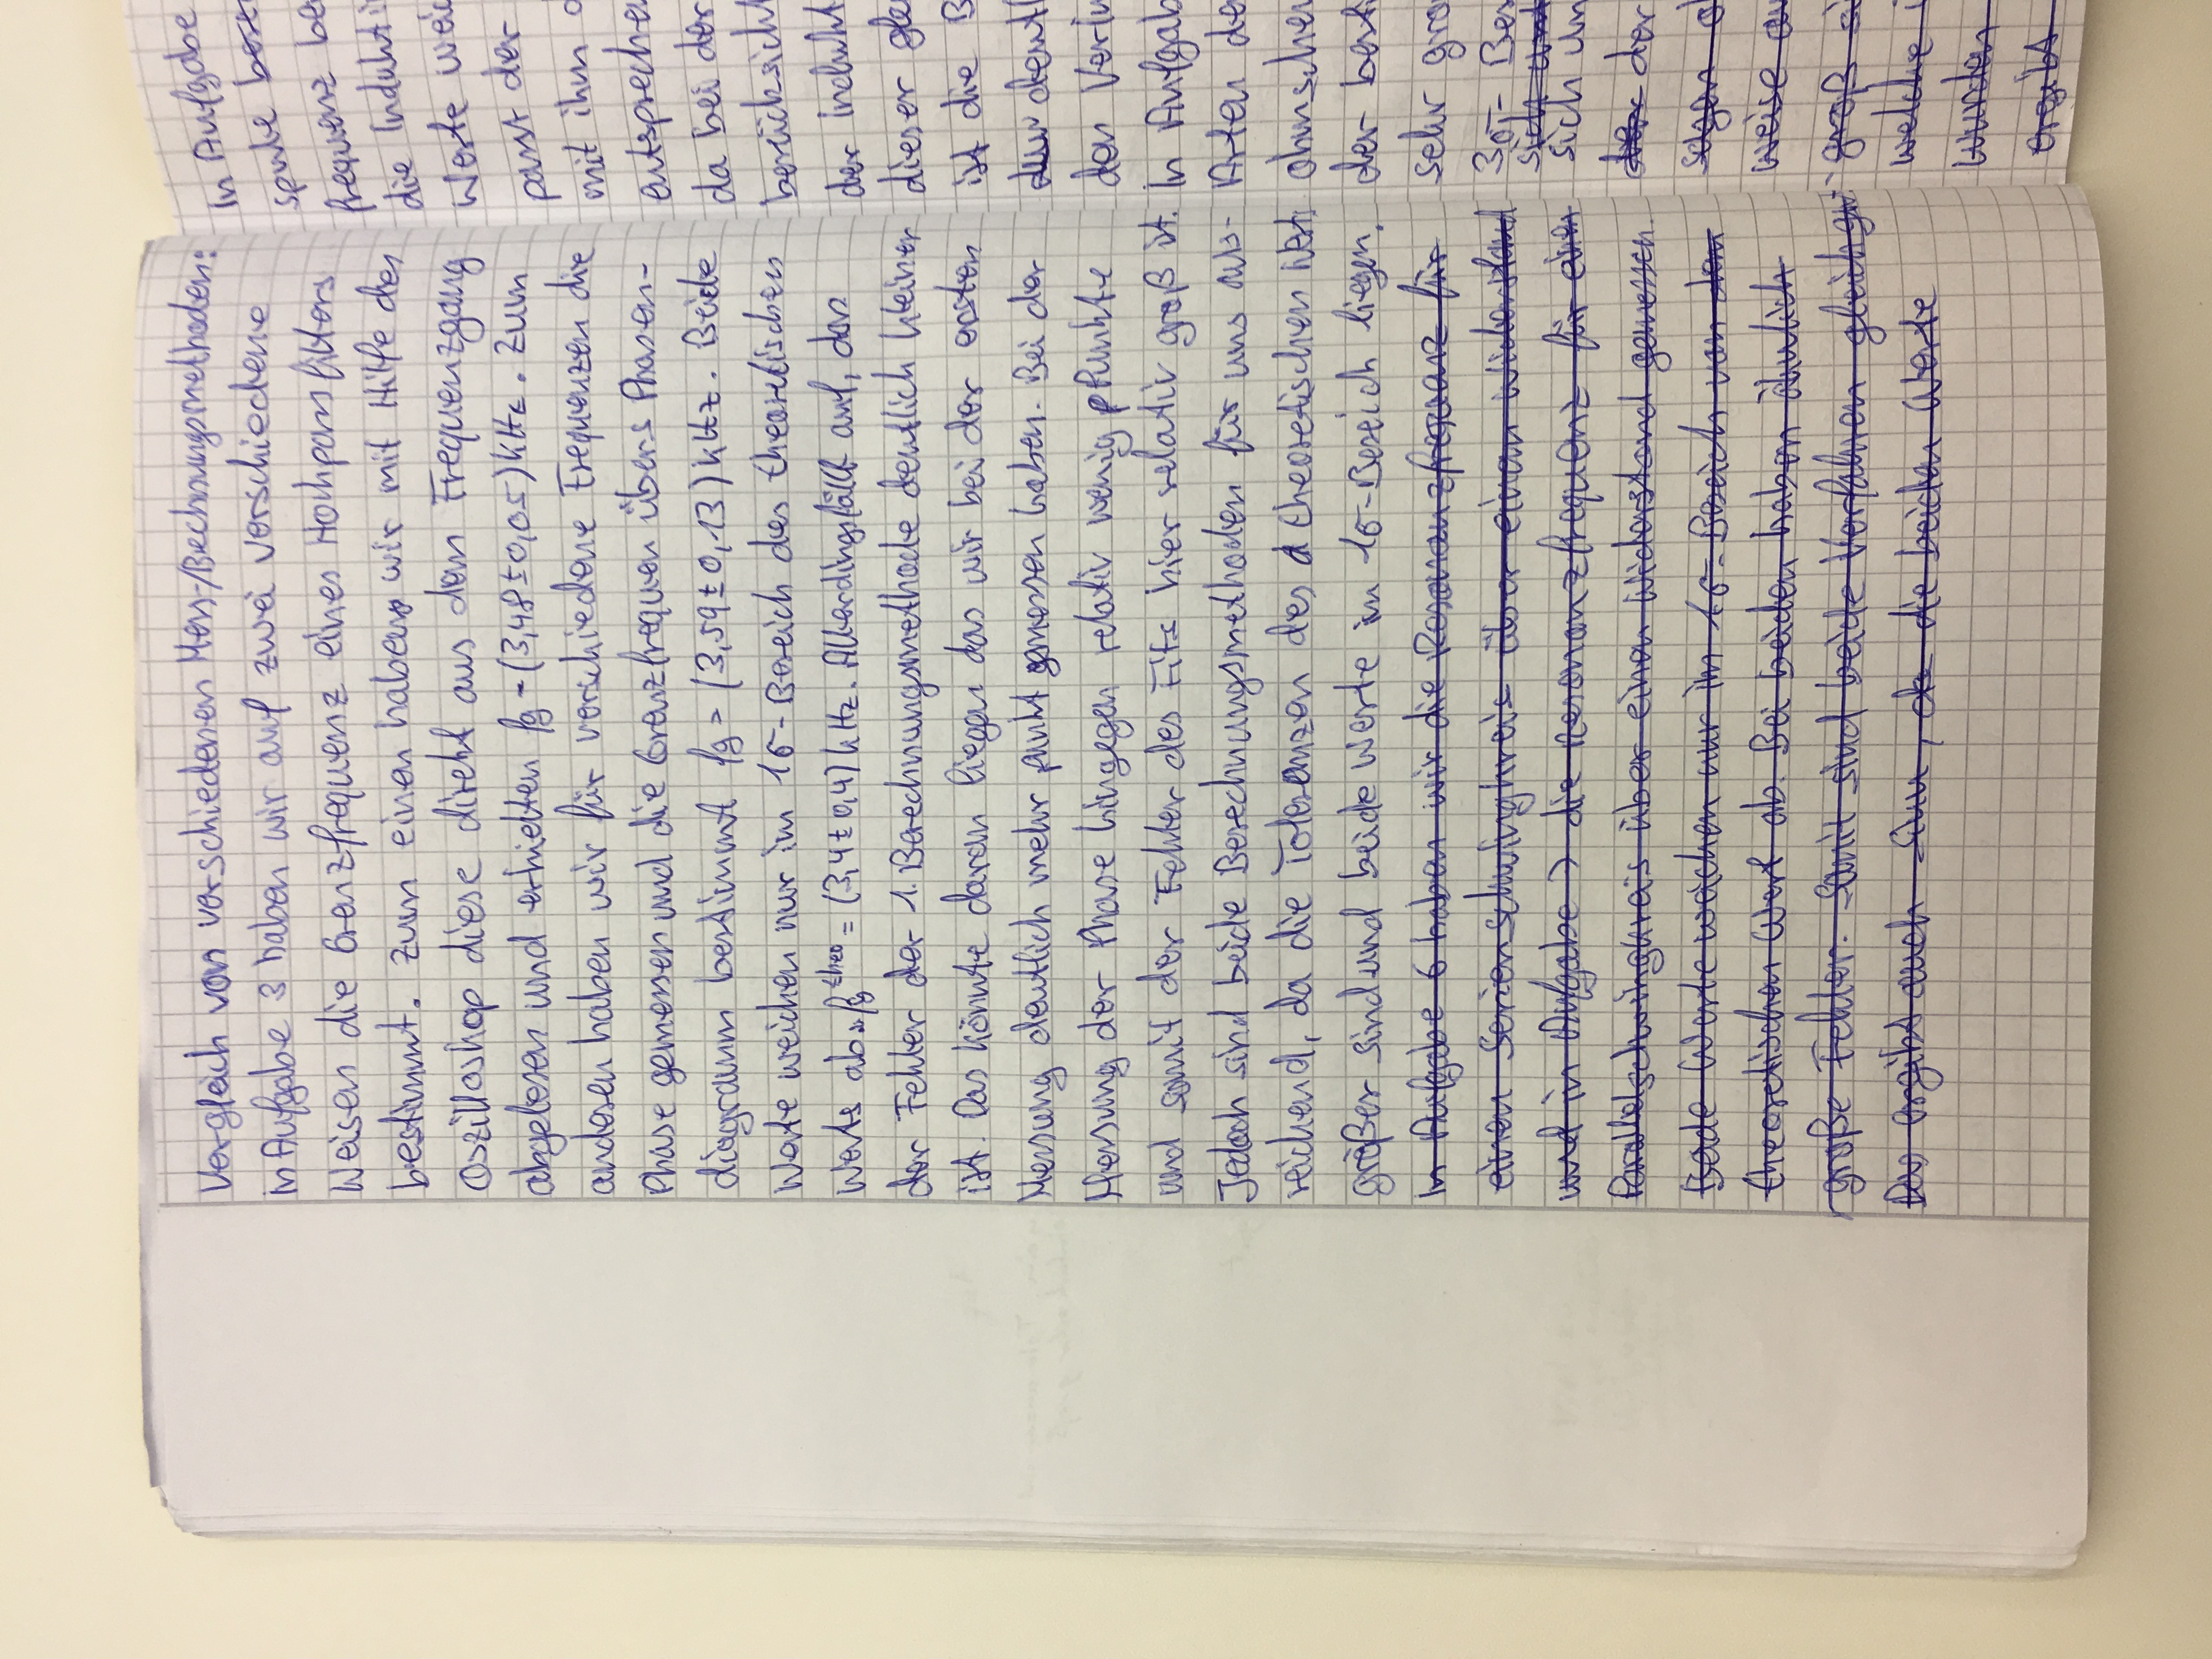 Vergleich von verschiedenen Mess-/Rechnungsmethoden:
in Aufgabe 3 haben wir auf zwei verschiedene
Weisen die Grenzfrequenz eines Hochpassfilters
bestimmt. Zum einen haben wir mit Hilfe des
Oszilloskop diese direkt aus dem Frequenzgang
abgelesen und erhielten fg = (3,48±0,05) kHz. Zum
anderen haben wir für verschiedene Frequenzen die
Phase gemessen und die Grenzfrequen übers Phasen-
diagramm bestimmt fg = (3,59±0,13) kHz. Beide
Werte weichen nur im 1σ-Bereich des theoretischen
Werts ab. fg^theo = (3,4±0,4) kHz. Allerdings fällt auf, das
der Fehler der 1. Berechnungsmethode deutlich kleiner
ist. Das könnte daran liegen das wir bei der ersten
Messung deutlich mehr punkt gemessen haben. Bei der
Messung der Phase hingegen relativ wenig Punkte
und somit der Fehler des Fits hier relativ groß ist.
Jedoch sind beide Berechnungsmethoden für uns aus-
reichend, da die Toleranzen des theoretischen Werts
größer sind und beide Werte im 1σ-Bereich liegen.
In Aufgabe 6 haben wir die Resonanzfrequenz für
einen Serienschwingkreis über einen Widerstand
und in Aufgabe 7 die Resonanzfrequenz für einen
Parallelschwingkreis über einen Widerstand gemessen.
Beide Werte weichen nur im 1σ-Bereich von dem
theoretischen Wert ab. Bei beiden haben ähnlich
große Fehler. Somit sind beide Verfahren gleich gut.
Das ergibt auch Sinn, da die beiden Werte
In Aufgabe
spule
frequenz
die
Werte
passt der
mit ihm
da bei der
der
dieser
ist die
den
In
Arten
der
sehr
3σ-
sich
der
weise
groß
welche
wurden
ergibt